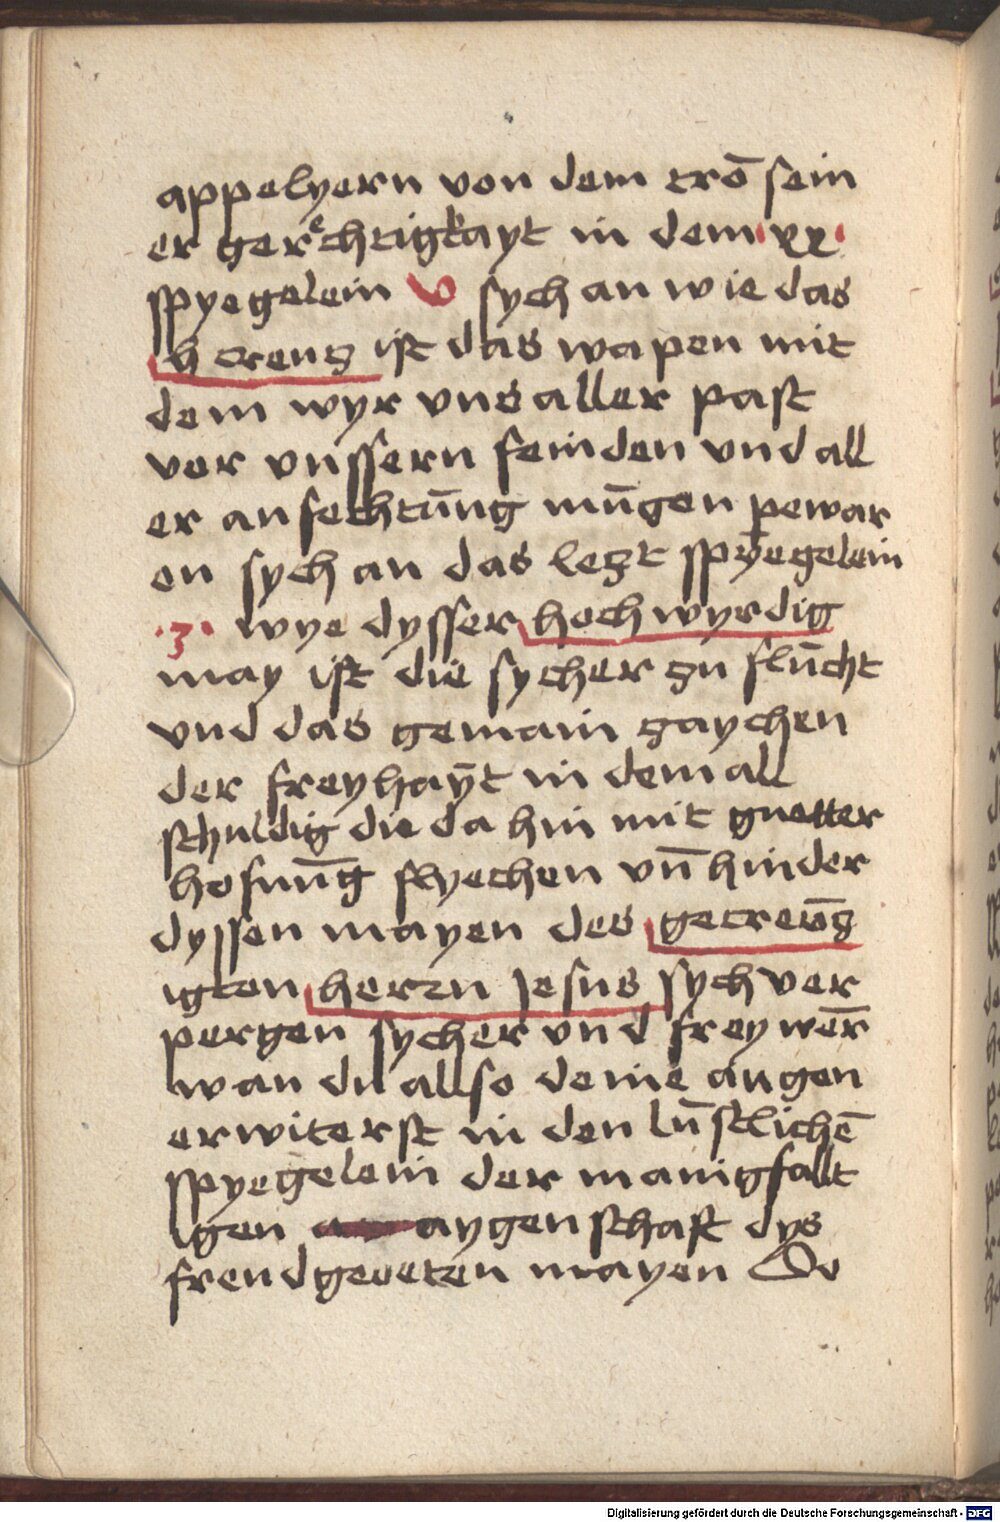 appelyern von dem tro̅ sein
er gerͤchtigkayt in dem · xx ·
spyegelein v sych an wie das
h creutz ist das wapen mit
dem wyr vns aller past
vor vnssern feinden vnd all
er anfechtu̅ng mu̅gen pewar
en sych an das letzt spyegelein
· z · wye dysser hochwyrdig
may ist die sycher zu flu̅cht
vnd das gemain zaychen
der freyhayt in dem all
schuldig die da hin mit guetter
hofnu̅g flyechen vn̅ hinder
dyssen mayen des gecreu̅tz
igten herrn Jesus sych ver
pergen sycher vnd frey wer̅
wan du allso deine augen
erwiterst in den lu̅stliche̅
spyegelein der manigfallt
igen aygenschaft dys
freudgeeten mayen Do
Digitalisierung gefördert durch die Deutsche Forschungsgemeinschaft - DFG